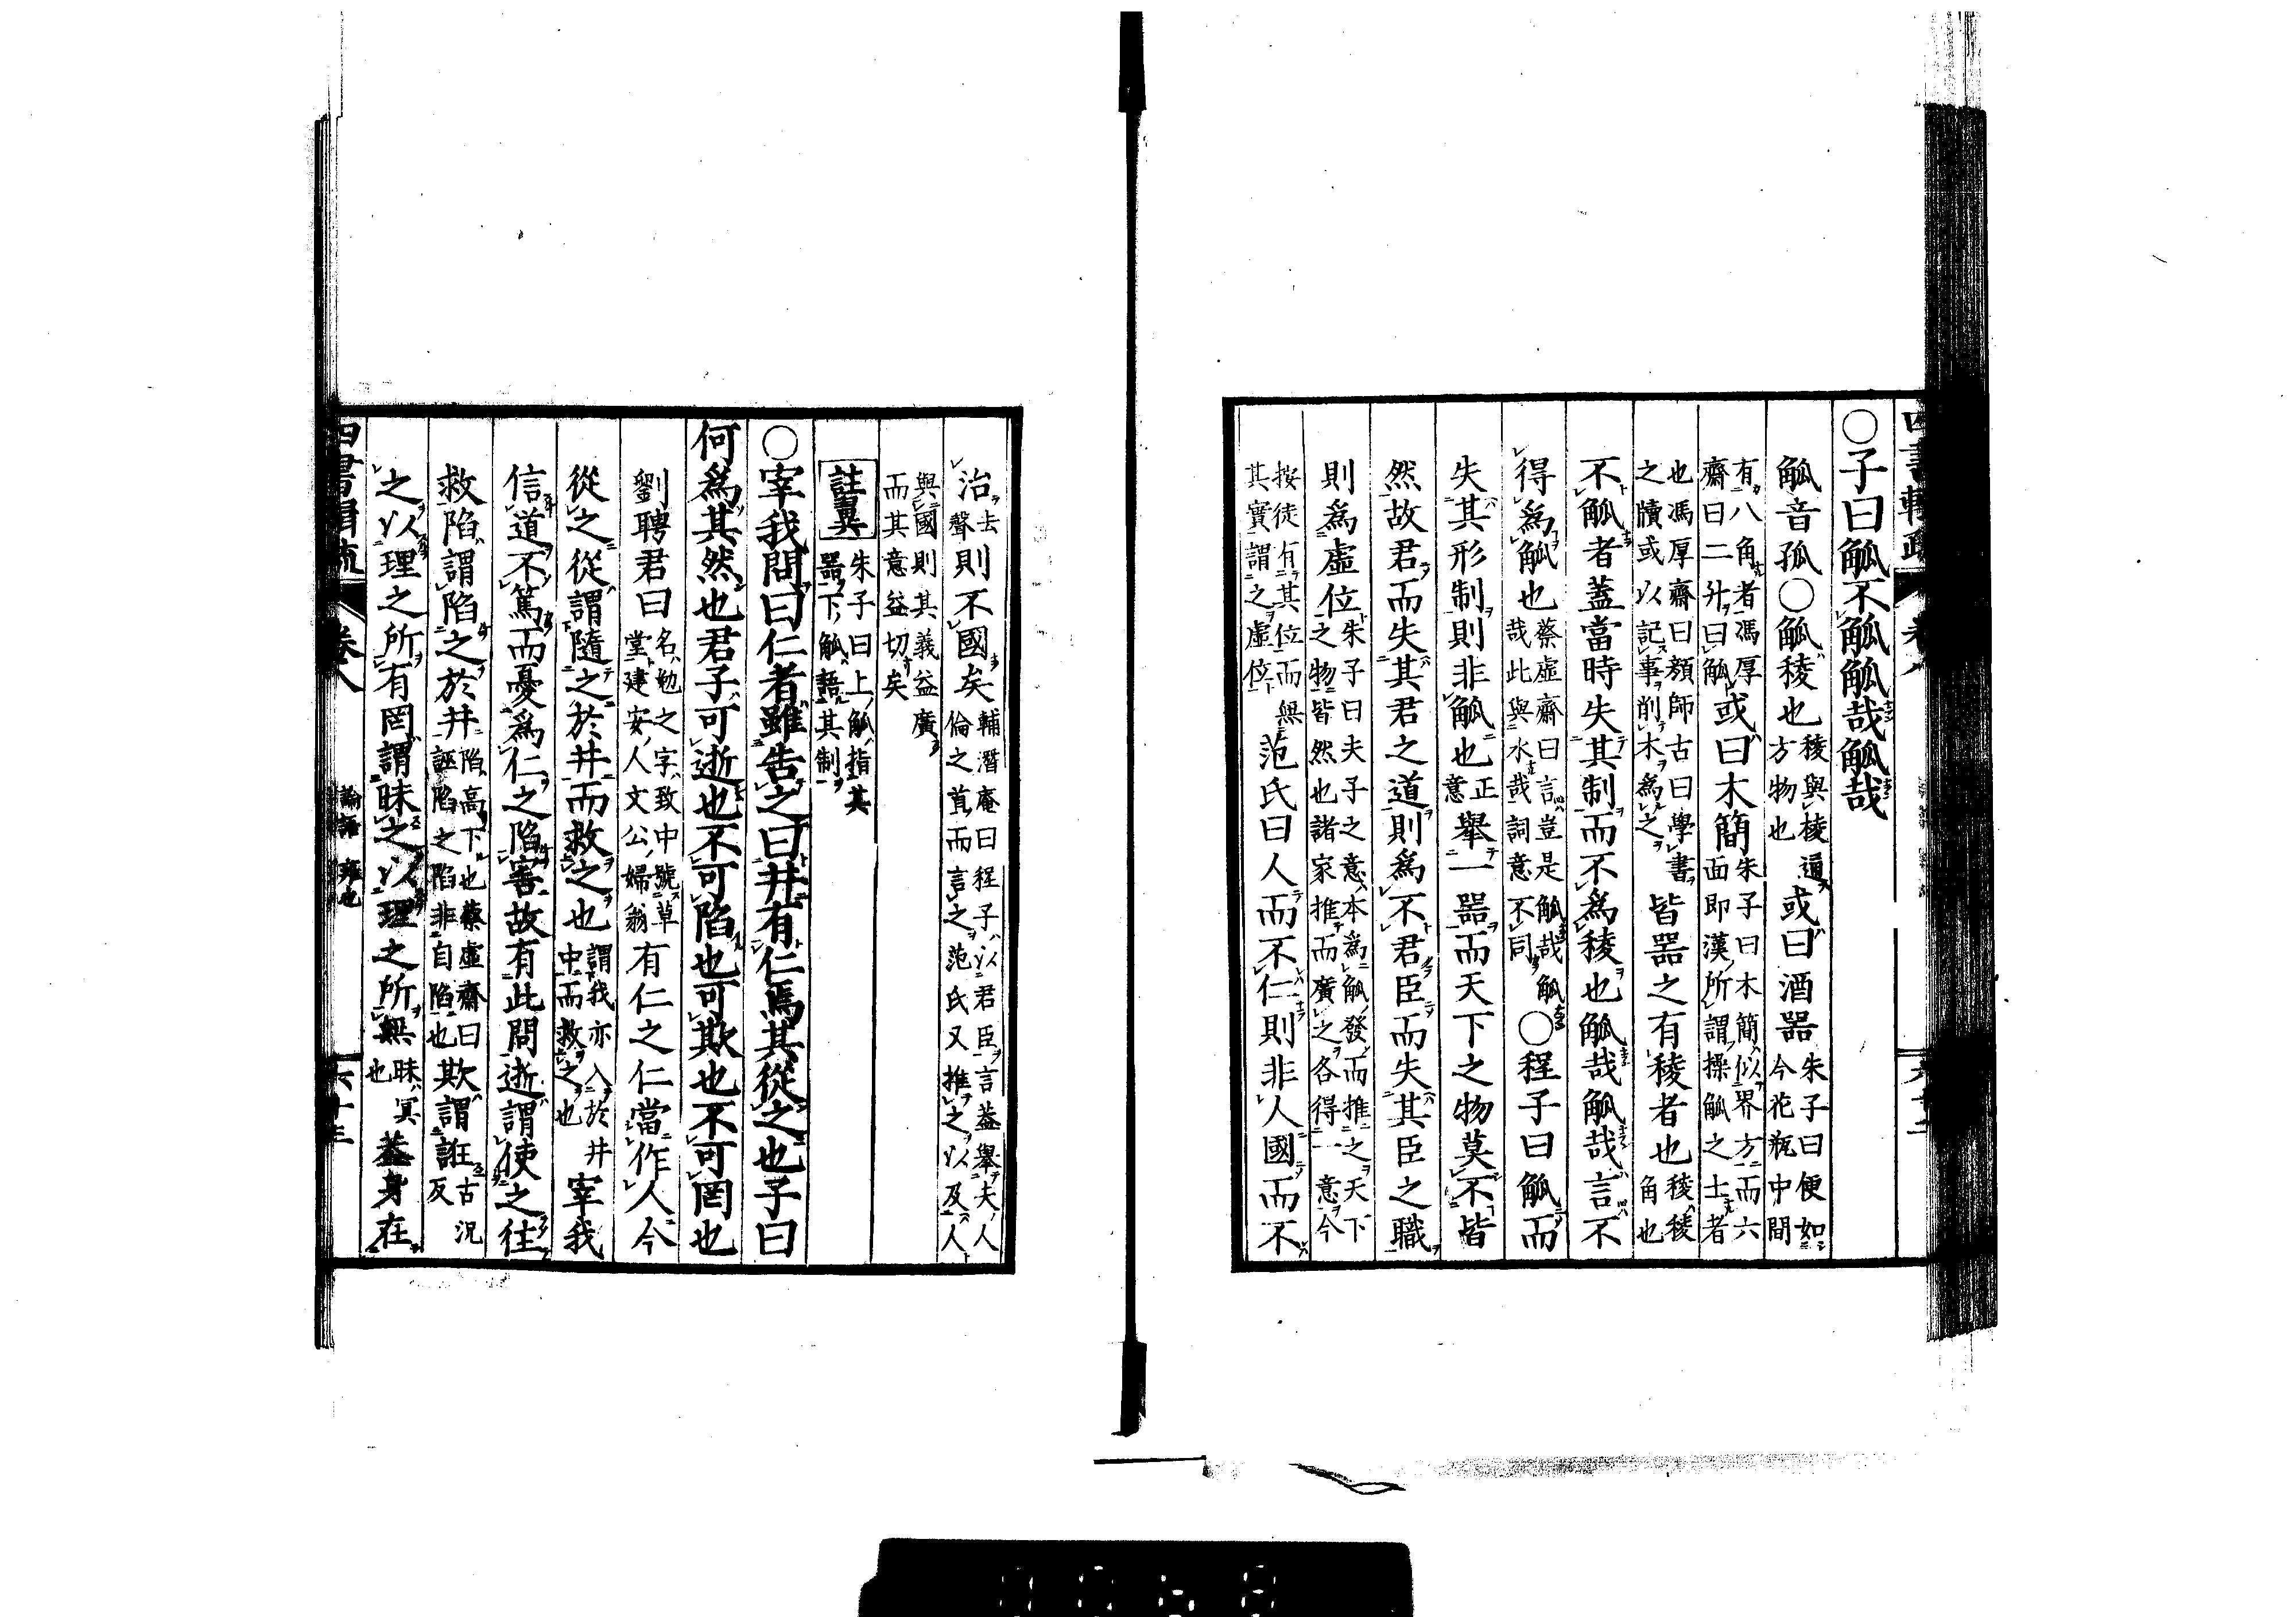 ○子曰觚不觚觚哉觚哉
觚音孤○觚稜也
稜與棱通
方物也
或曰酒器
朱子曰便如
今花瓶中間
有八角者馮厚
齋曰二升曰觚
或曰木簡
朱子曰木簡似界方而六
面即漢所謂操觚之士者
也馮厚齋曰顔師古曰學書
之牘或以記事削木爲之
皆器之有稜者也
稜稜
角也
不觚者蓋當時失其制而不爲稜也觚哉觚哉言不
得爲觚也
蔡虛齋曰言豈是觚哉觚
哉此與水哉詞意不同
○程子曰觚而
失其形制則非觚也
正
意
舉一器而天下之物莫不皆
然故君而失其君之道則爲不君臣而失其臣之職
則爲虛位
朱子曰夫子之意本爲觚發而推之天下
之物皆然也諸家推而廣之各得一意今
按徒有其位而無
其實謂之虛位
范氏曰人而不仁則非人國而不
治
去
聲
則不國矣
輔潛庵曰程子以君臣言蓋舉夫人
倫之首而言之范氏又推之以及人
與國則其義益廣
而其意益切矣
註翼
朱子曰上觚指其
器下觚語其制
○宰我問曰仁者雖告之曰井有仁焉其從之也子曰
何爲其然也君子可逝也不可陷也可欺也不可罔也
劉聘君曰
名勉之字致中號草
堂建安人文公婦翁
有仁之仁當作人今
從之從謂隨之於井而救之也
謂我亦入於井
中而救之也
宰我
信道不篤而憂爲仁之陷害故有此問逝謂使之往
救陷謂陷之於井
陷高下也蔡虛齋曰
誣陷之陷非自陷也
欺謂誑
古況
反
之以理之所有罔謂昧之以理之所無
昧冥
也
蓋身在
四書輯疏
卷八
論語 雍也
六十三